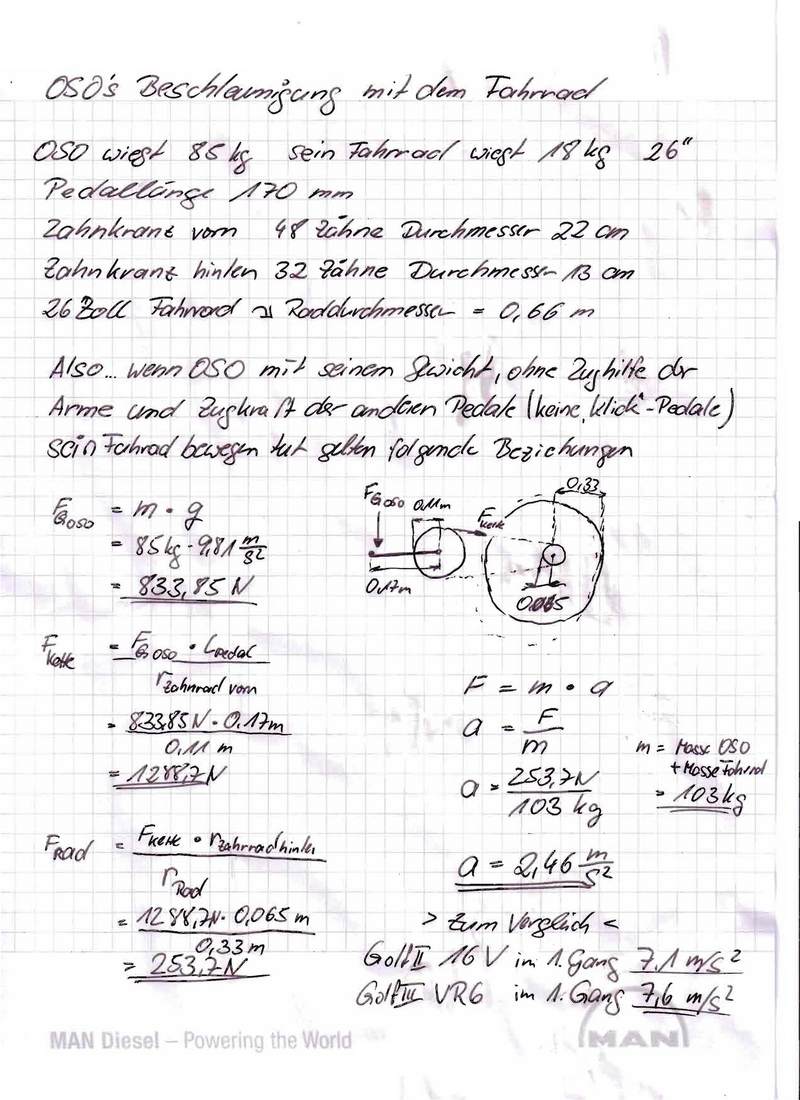 OSO's Beschleunigung mit dem Fahrrad
OSO wiegt 85 kg sein Fahrrad wiegt 18 kg 26"
Pedallänge 170 mm
Zahnkranz vorn 48 Zähne Durchmesser 22 cm
Zahnkranz hinten 32 Zähne Durchmesser 13 cm
26 Zoll Fahrrad ⇒ Raddurchmesser = 0,66 m
Also... wenn OSO mit seinem Gewicht, ohne Zughilfe der
Arme und Zugkraft der anderen Pedale (keine "Klick"-Pedale)
sein Fahrad bewegen tut gelten folgende Beziehungen
F_G OSO = m · g
= 85 kg · 9,81 m/s²
= 833,85 N
F_G OSO 0,11m
F_Kette
0,33
0,17m
0,065
F_Kette = F_G OSO · L_Pedal / r_Zahnrad vorn
= 833,85 N · 0,17m / 0,11 m
= 1288,7 N
F_Rad = F_Kette · r_Zahnrad hinten / r_Rad
= 1288,7N · 0,065 m / 0,33 m
= 253,7 N
F = m · a
a = F / m
a = 253,7 N / 103 kg
m = Masse OSO
+ Masse Fahrrad
= 103 kg
a = 2,46 m/s²
> Zum Vergleich <
Golf II 16V im 1. Gang 7,1 m/s²
Golf III VR6 im 1. Gang 7,6 m/s²
MAN Diesel – Powering the World
MAN